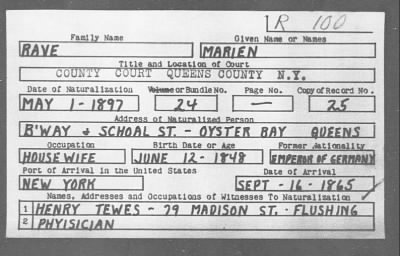 R 100
Family Name Given Name or Names
RAVE MARIEN
Title and Location of Court
COUNTY COURT QUEENS COUNTY N.Y.
Date of Naturalization Volume or Bundle No. Page No. Copy of Record No.
MAY 1-1897 24 — 25
Address of Naturalized Person
B'WAY & SCHOAL ST. - OYSTER BAY QUEENS
Occupation Birth Date or Age Former Nationality
HOUSE WIFE JUNE 12-1848 EMPEROR OF GERMANY
Port of Arrival in the United States Date of Arrival
NEW YORK SEPT-16-1865
Names, Addresses and Occupations of Witnesses To Naturalization
1 HENRY TEWES - 79 MADISON ST. - FLUSHING
2 PHYISICIAN